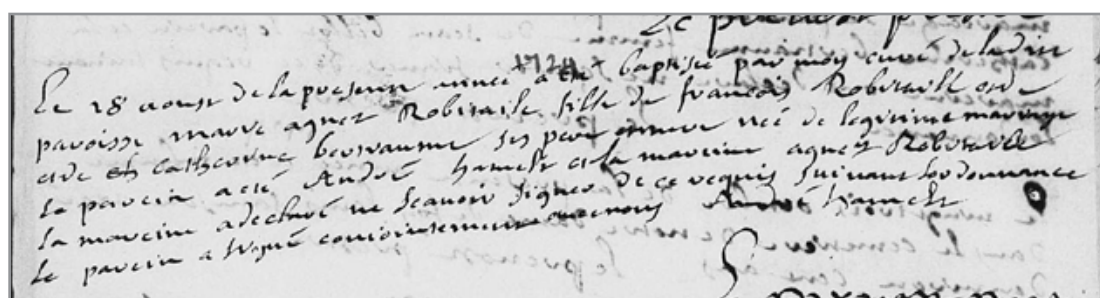 Le 18 aoust de la presente année a été baptisée par moy curé de ladite
paroisse marie agnes Robitaile fille de francois Robitaille
et de Catherine ses pere et mere née de legitime mariage
le parein a eté André hamelt et la mareine agnes Robitaile
la mareine a declaré ne scavoir signer de ce requis suivant lordonnance
le parein a signé conjointement avec nous André hamelt